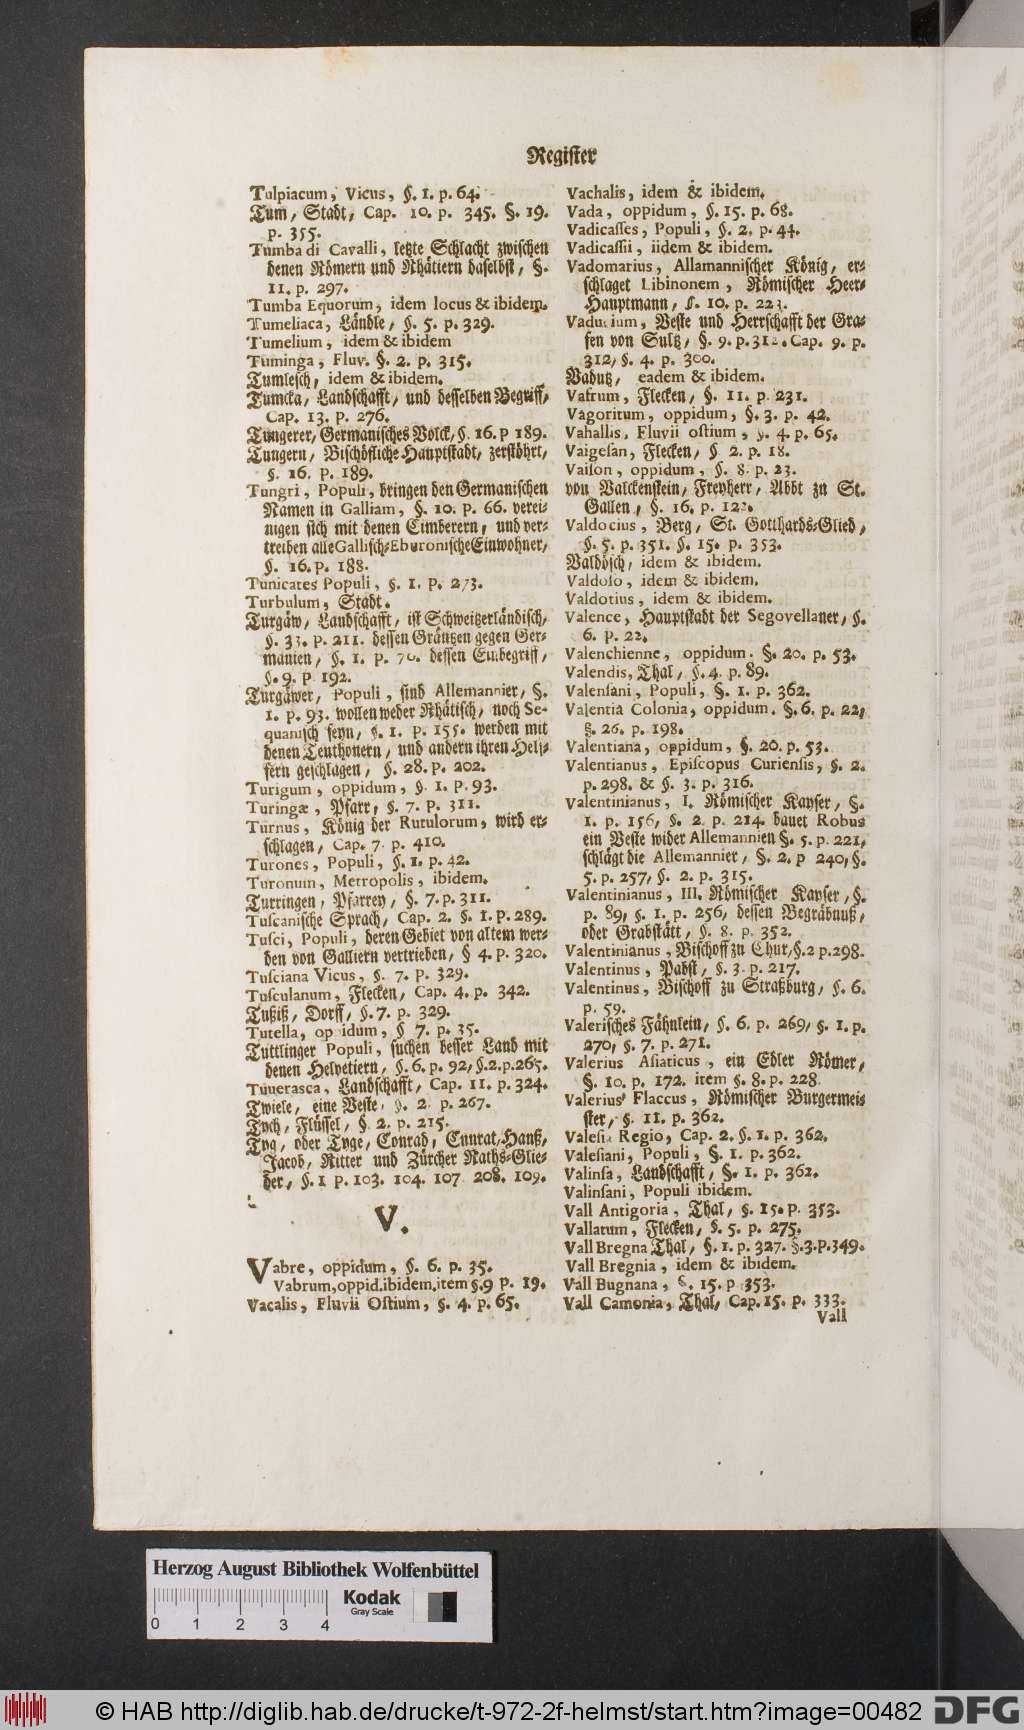 Register
Tulpiacum, Vicus, §. 1. p. 64.
Tum, Stadt, Cap. 10. p. 345. §. 19.
p. 355.
Tumba di Cavalli, letzte Schlacht zwischen
denen Römern und Rhätiern daselbst, §.
11. p. 297.
Tumba Equorum, idem locus & ibidem.
Tumeliaca, Ländle, §. 5. p. 329.
Tumelium, idem & ibidem
Tuminga, Fluv. §. 2. p. 315.
Tumlesch, idem & ibidem.
Tumcka, Landschafft, und desselben Begriff,
Cap. 13. p. 276.
Tungerer, Germanisches Volck, §. 16. p 189.
Tungern, Bischöfliche Hauptstadt, zerstöhrt,
§. 16. p. 189.
Tungri, Populi, bringen den Germanischen
Namen in Galliam, §. 10. p. 66. verei-
nigen sich mit denen Cimberern, und ver-
treiben alle Gallisch-Eburonische Einwohner,
§. 16. p. 188.
Tunicates Populi, §. 1. p. 273.
Turbulum, Stadt.
Turgäw, Landschafft, ist Schweitzerländisch,
§. 33. p. 211. dessen Gräntzen gegen Ger-
manien, §. 1. p. 70. dessen Einbegriff,
§. 9. p 192.
Turgäwer, Populi, sind Allemannier, §.
1. p. 93. wollen weder Rhätisch, noch Se-
quanisch seyn, §. 1. p. 155. werden mit
denen Teuthonern, und andern ihren Helf-
fern geschlagen, §. 28. p. 202.
Turigum, oppidum, §. 1. p. 93.
Turingæ, Pfarr, §. 7. p. 311.
Turnus, König der Rutulorum, wird er-
schlagen, Cap. 7. p. 410.
Turones, Populi, §. 1. p. 42.
Turonum, Metropolis, ibidem.
Turringen, Pfarrey, §. 7. p. 311.
Tuscanische Sprach, Cap. 2. §. 1. p. 289.
Tusci, Populi, deren Gebiet von altem wer-
den von Galliern vertrieben, § 4. p. 320.
Tusciana Vicus, §. 7. p. 329.
Tusculanum, Flecken, Cap. 4. p. 342.
Tußiß, Dorff, §. 7. p. 329.
Tutella, op idum, § 7. p. 35.
Tuttlinger Populi, suchen besser Land mit
denen Helvetiern, §. 6. p. 92, §. 2. p. 265.
Tuverasca, Landschafft, Cap. 11. p. 324.
Twiele, eine Veste, §. 2 p. 267.
Tych, Flüssel, §. 2. p. 215.
Tyg, oder Tyge, Conrad, Cunrat, Hanß,
Jacob, Ritter und Zürcher Raths-Glie-
der, §. 1 p. 103. 104. 107 208. 109.
V.
Vabre, oppidum, §. 6. p. 35.
Vabrum, oppid. ibidem. item §. 9 p. 19.
Vacalis, Fluvii Ostium, §. 4. p. 65.
Vachalis, idem & ibidem.
Vada, oppidum, §. 15. p. 68.
Vadicasses, Populi, §. 2. p. 44.
Vadicassii, iidem & ibidem.
Vadomarius, Allamannischer König, er-
schlaget Libinonem, Römischer Heer-
Hauptmann, §. 10. p. 223.
Vaducium, Veste und Herrschafft der Gra-
fen von Sultz, §. 9. p. 312. Cap. 9. p.
312, §. 4. p. 300.
Vadutz, eadem & ibidem.
Vafrum, Flecken, §. 11. p. 231.
Vagoritum, oppidum, §. 3. p. 42.
Vahallis, Fluvii ostium, §. 4. p. 65.
Vaigesan, Flecken, § 2. p. 18.
Vaison, oppidum, §. 8. p. 23.
von Valckenstein, Freyherr, Abbt zu St.
Gallen, §. 16. p. 122.
Valdocius, Berg, St. Gotthards-Glied,
§. 5. p. 351. §. 15. p. 353.
Valdösch, idem & ibidem.
Valdoso, idem & ibidem.
Valdotius, idem & ibidem.
Valence, Hauptstadt der Segovellaner, §.
6. p. 22.
Valenchienne, oppidum. §. 20. p. 53.
Valendis, Thal, §. 4. p. 89.
Valensani, Populi, §. 1. p. 362.
Valentia Colonia, oppidum. §. 6. p. 22,
§. 26. p. 198.
Valentiana, oppidum, §. 20. p. 53.
Valentianus, Episcopus Curiensis, §. 2.
p. 298. & §. 3. p. 316.
Valentinianus, I. Römischer Kayser, §.
1. p. 156, §. 2. p. 214. bauet Robus
ein Veste wider Allemannien §. 5. p. 221,
schlägt die Allemannier, §. 2. p 240, §.
5. p. 257, §. 2. p. 315.
Valentinianus, III. Römischer Kayser, §.
p. 89, §. 1. p. 256, dessen Begräbnuß,
oder Grabstätt, §. 8. p. 352.
Valentinianus, Bischoff zu Chur, §. 2 p. 298.
Valentinus, Pabst, §. 3. p. 217.
Valentinus, Bischoff zu Straßburg, §. 6.
p. 59.
Valerisches Fähnlein, §. 6. p. 269, §. 1. p.
270, §. 7. p. 271.
Valerius Asiaticus, ein Edler Römer,
§. 10. p. 172. item §. 8. p. 228.
Valerius Flaccus, Römischer Burgermei-
ster, §. 11. p. 362.
Valesia Regio, Cap. 2. §. 1. p. 362.
Valesiani, Populi, §. 1. p. 362.
Valinsa, Landschafft, §. 1. p. 362.
Valinsani, Populi ibidem.
Vall Antigoria, Thal, §. 15. p. 353.
Vallatum, Flecken, §. 5. p. 275.
Vall Bregna Thal, §. 1. p. 327. §. 3. p. 349.
Vall Bregnia, idem & ibidem.
Vall Bugnana, §. 15. p 353.
Vall Camonia, Thal, Cap. 15. p. 333.
Vall
Herzog August Bibliothek Wolfenbüttel
Kodak
Gray Scale
0 1 2 3 4
© HAB http://diglib.hab.de/drucke/t-972-2f-helmst/start.htm?image=00482 DFG